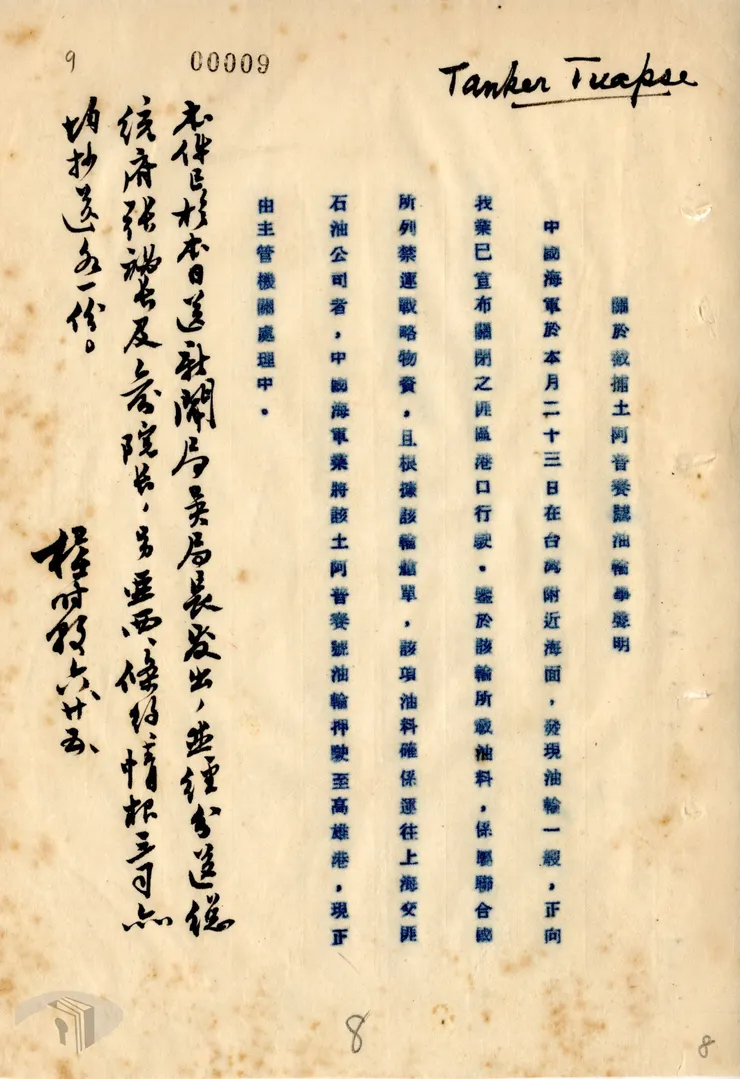 9
00009
Tanker Tuapse
關於截捕土阿普賽號油輪事聲明
中國海軍於本月二十三日在台灣附近海面,發現油輪一艘,正向
我業已宣布關閉之匪區港口行駛。鑒於該輪所載油料,係屬聯合國
所列禁運戰略物資,且根據該輪艙單,該項油料確係運往上海交匪
石油公司者,中國海軍業將該土阿普賽號油輪押駛至高雄港,現正
由主管機關處理中。
本件已於本日送新聞局吳局長發出,並經分送總
統府張秘長及俞院長,另亞西、條約、情報三司亦
均抄送各一份。
時 六廿五
8
8